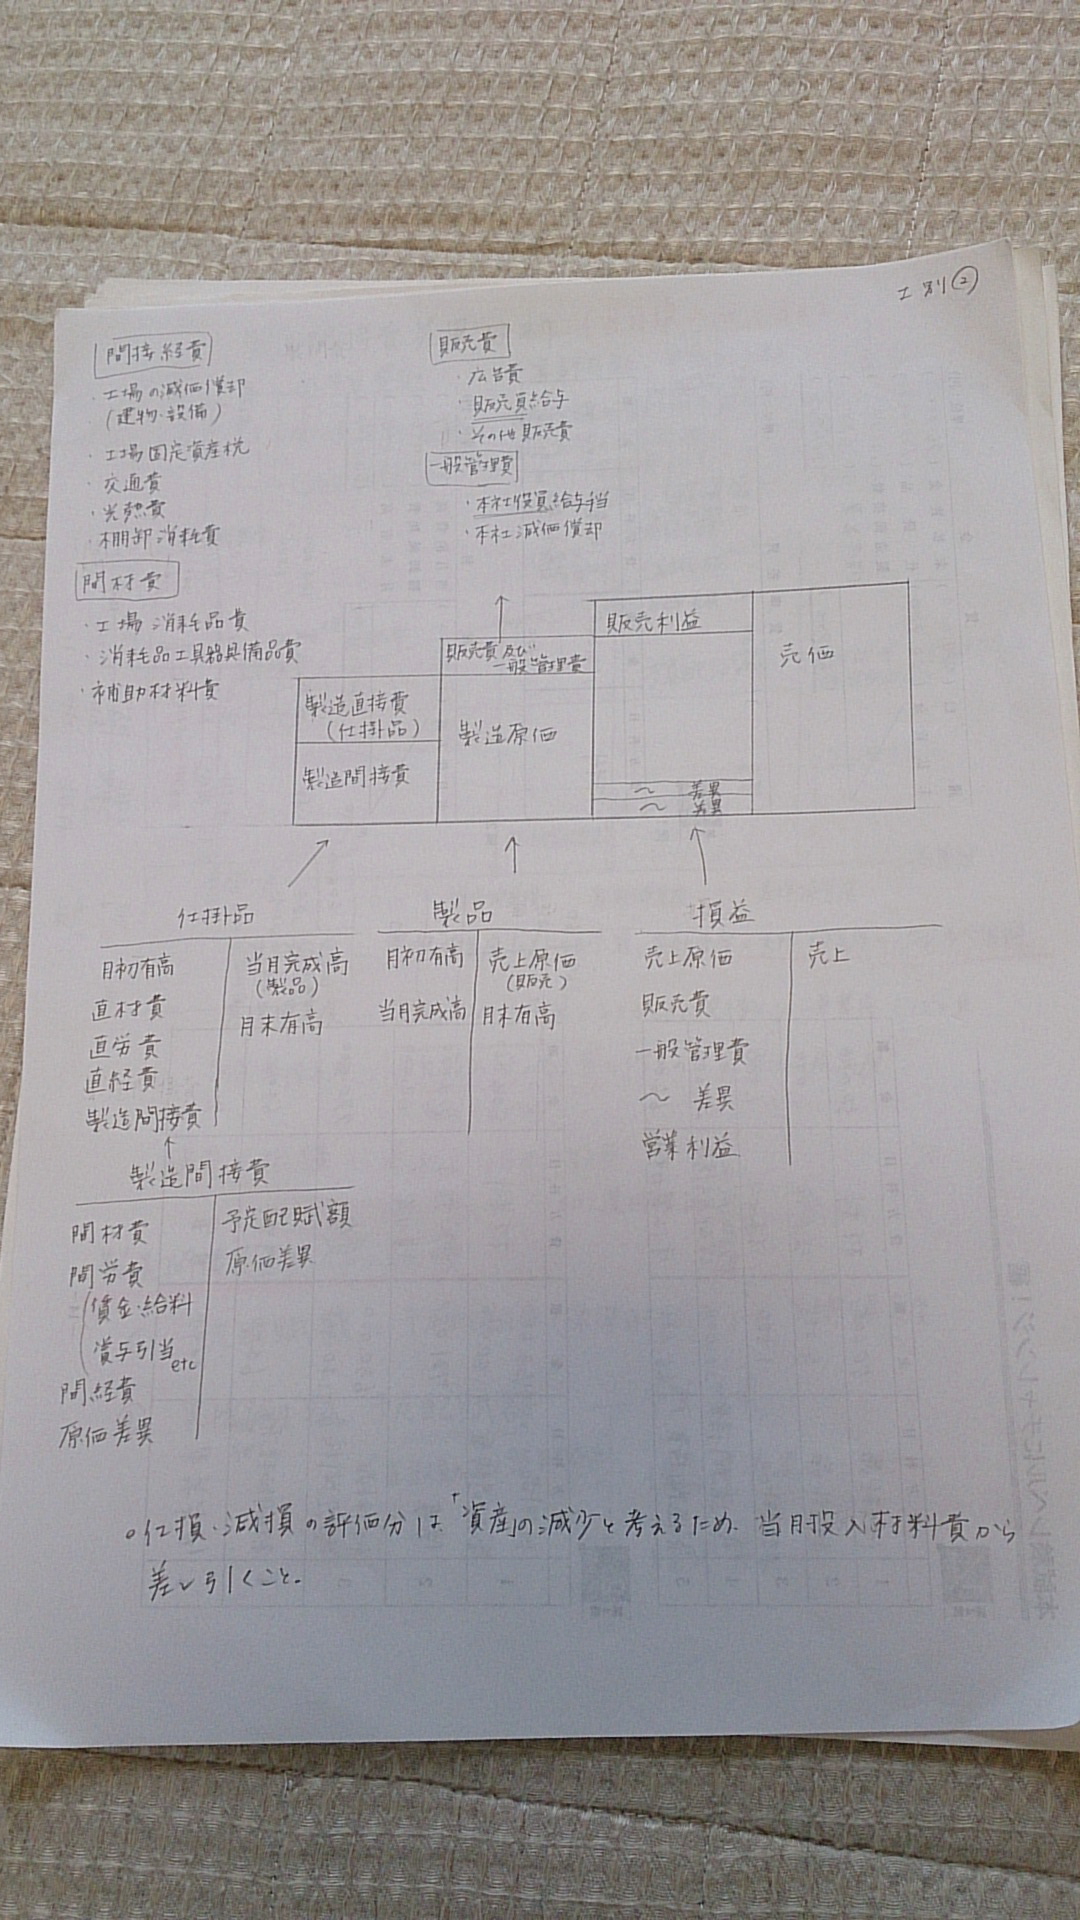 工別②
間接経費
・工場の減価償却
(建物・設備)
・工場固定資産税
・交通費
・光熱費
・棚卸消耗費
間材費
・工場消耗品費
・消耗品工具器具備品費
・補助材料費
販売費
・広告費
・販売員給与
・その他販売費
一般管理費
・本社役員給与手当
・本社減価償却
製造直接費
(仕掛品)
製造間接費
販売費及び
一般管理費
製造原価
販売利益
〜 差異
〜 差異
売価
仕掛品
月初有高
直材費
直労費
直経費
製造間接費
当月完成高
(製品)
月末有高
製品
月初有高
当月完成高
売上原価
(販売)
月末有高
損益
売上原価
販売費
一般管理費
〜 差異
営業利益
売上
製造間接費
間材費
間労費
賃金・給料
賞与引当etc
間経費
原価差異
予定配賦額
原価差異
○仕損・減損の評価分は、「資産」の減少と考えるため、当月投入材料費から
差し引くこと。